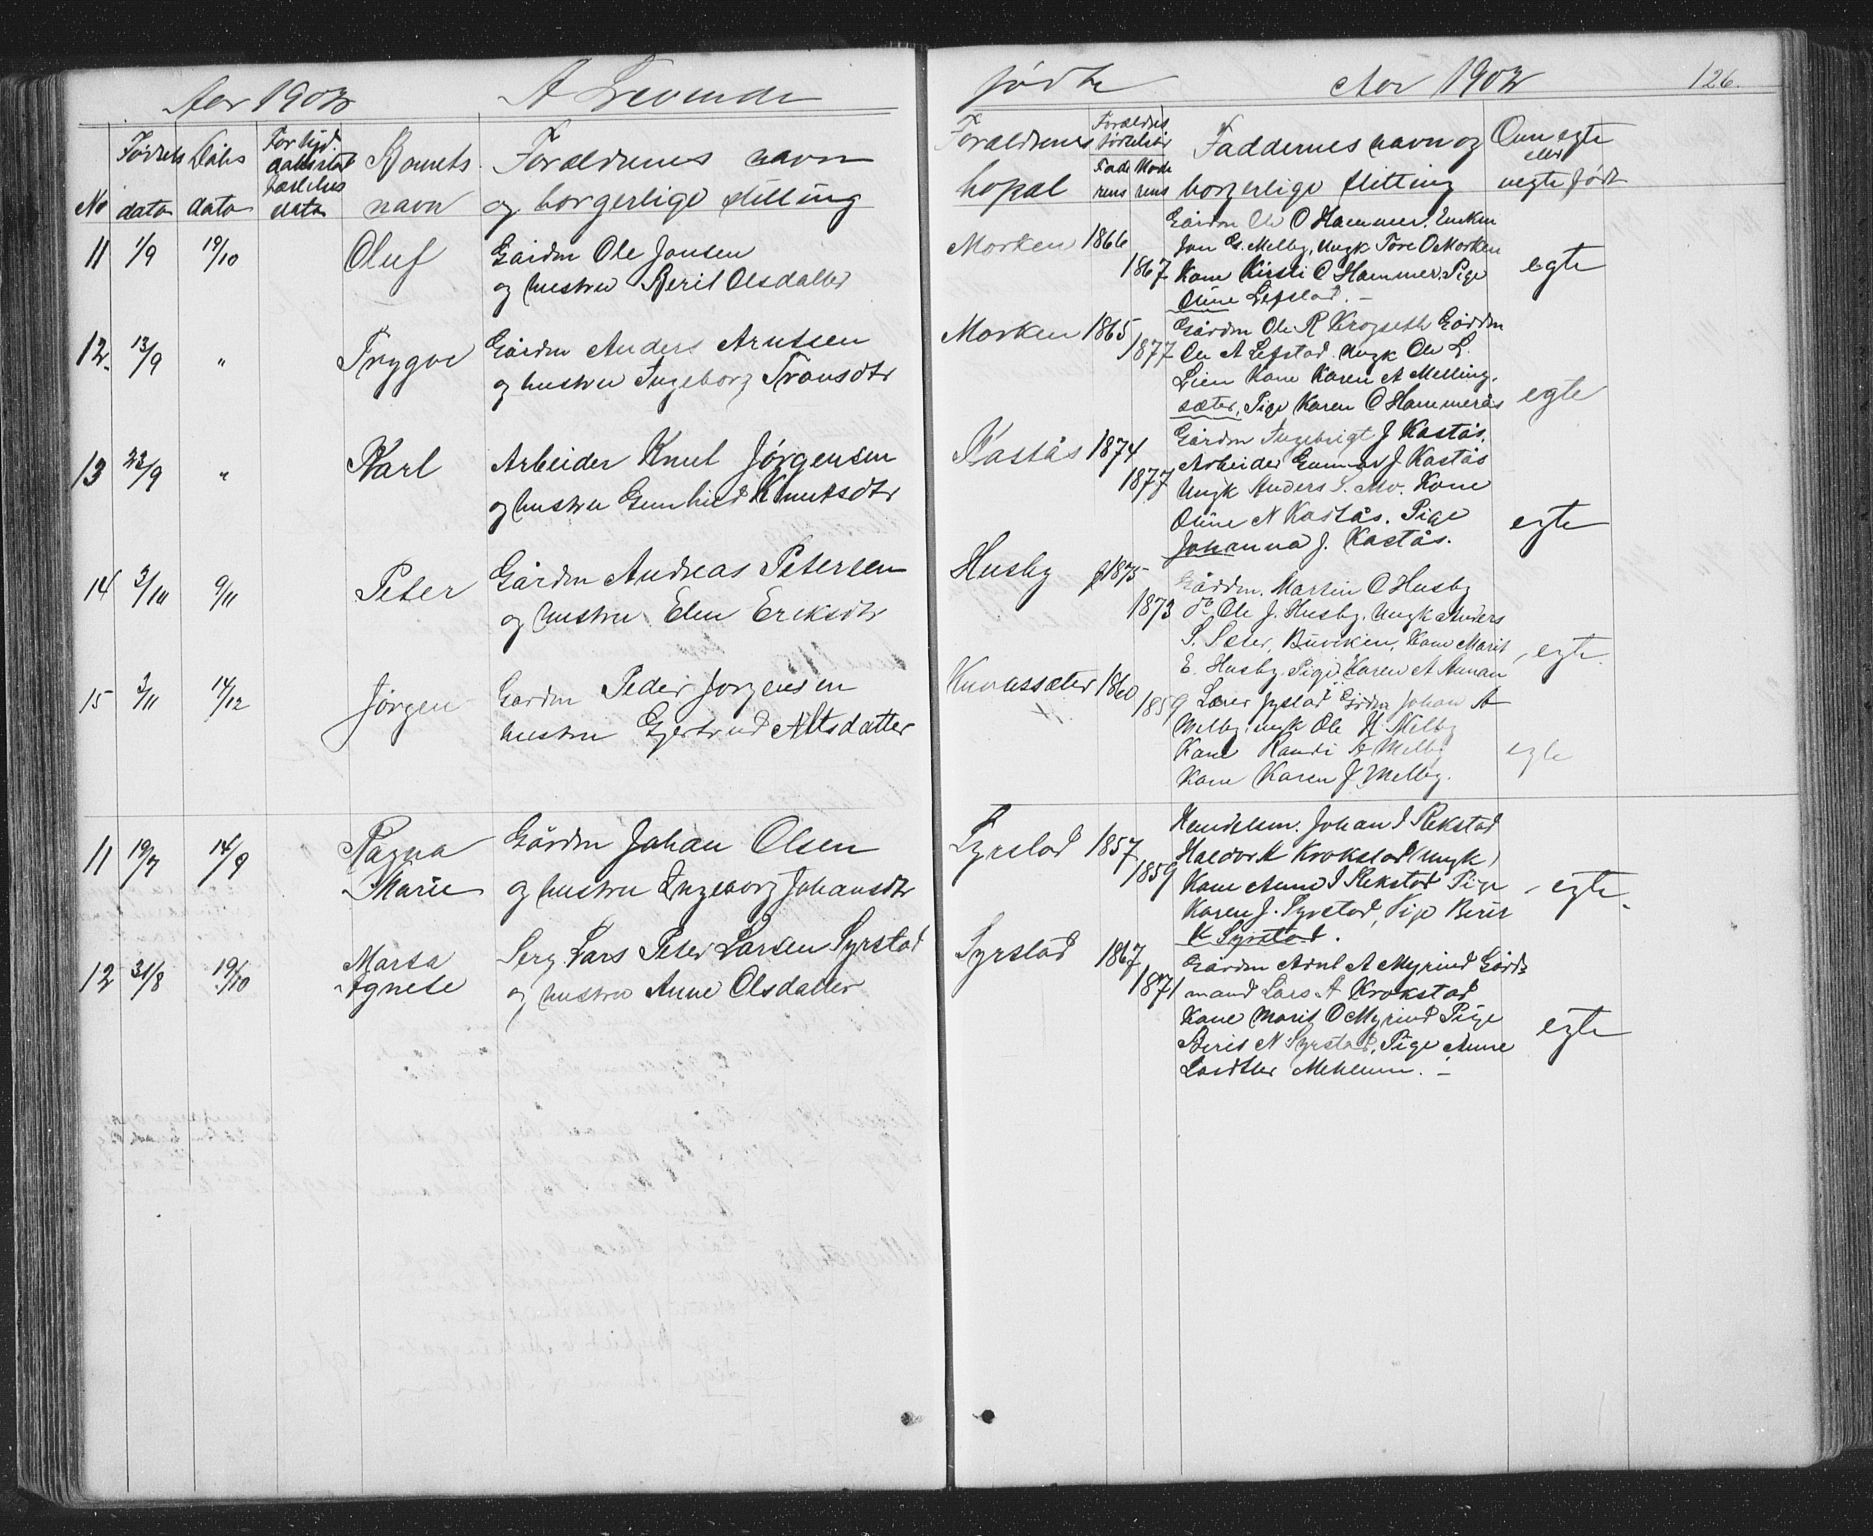 Aar 1902 A Levende
Fødsels Daabs Barnets Forældrenes navn
No dato dato dato navn og borgerlige stilling
11 1/9 19/10 Oluf Gårdm Ole Jonsen
og hustru Berit Olsdatter
12 13/9 " Trygve Gårdm Anders Arntsen
og hustru Ingeborg
13 22/9 " Karl Arbeider Knut Jørgensen
og hustru Gunhild Knutsdtr
14 2/10 9/11 Peter Gårdm Andreas Petersen
og hustru Elen Eriksdtr
15 2/11 14/12 Jørgen Gårdm Peder Jørgensen
hustru Gjertrud
11 19/7 14/9 Ragna Gårdm Johan Olsen
Marie og hustru Ingeborg Johansdtr
12 31/8 19/10 Marta Serg. Lars Peter Larsen Syrstad
Agnete og hustru Anne Olsdatter
fødte Aar 1902 126.
Forældrenes Forældres fødselsår Faddernes navn og Om egte
eller
bopæl Fade rens Mode rens borgerlige stilling uegte født
Morken 1866 Gårdm Ole O Hammer. Enkem
Jon G. Melby, Ungk Tore O Morken
1867 Kone Kirsti O Hammer. Pige egte
Oline Lefstad. –
Morken 1865 Gårdm Ole R Krogseth Gårdm
1877 Ole A Lefstad. Ungk Ole L.
Lien Kone Karen A Melling-
sæter, Pige Karen O Hammerås egte
Kastås 1874 Gårdm Ingebrigt J Kastås.
Arbeider Gunnar J Kastås
1877 Ungk Anders S. Mo. Kone
Oline N Kastås. Pige egte
Johanna J. Kastås.
Husby 1875 Gårdm. Martin O Husby
1873 do Ole J. Husby. Ungk Anders
S. Buviken, Kone Marit egte.
E. Husby. Pige Karen A
1860 Lærer Gårdm Johan A
1859 Melby, ungk Ole H Melby
Kone Randi A Melby egte
Kone Karen J Melby.
Syrstad 1857 Handelsm. Johan I Rekstad
Haldor K Krokstad (ungk)
1859 Kone Anne I Rekstad Pige egte.
Karen J. Syrstad, Pige Berit
K Syrstad.
Syrstad 1867 Gårdm Arnt A Myrind Gård-
1871 mand Lars A Krokstad
Kone Marit O Myrind Pige egte
Berit N Syrstad, Pige Anne